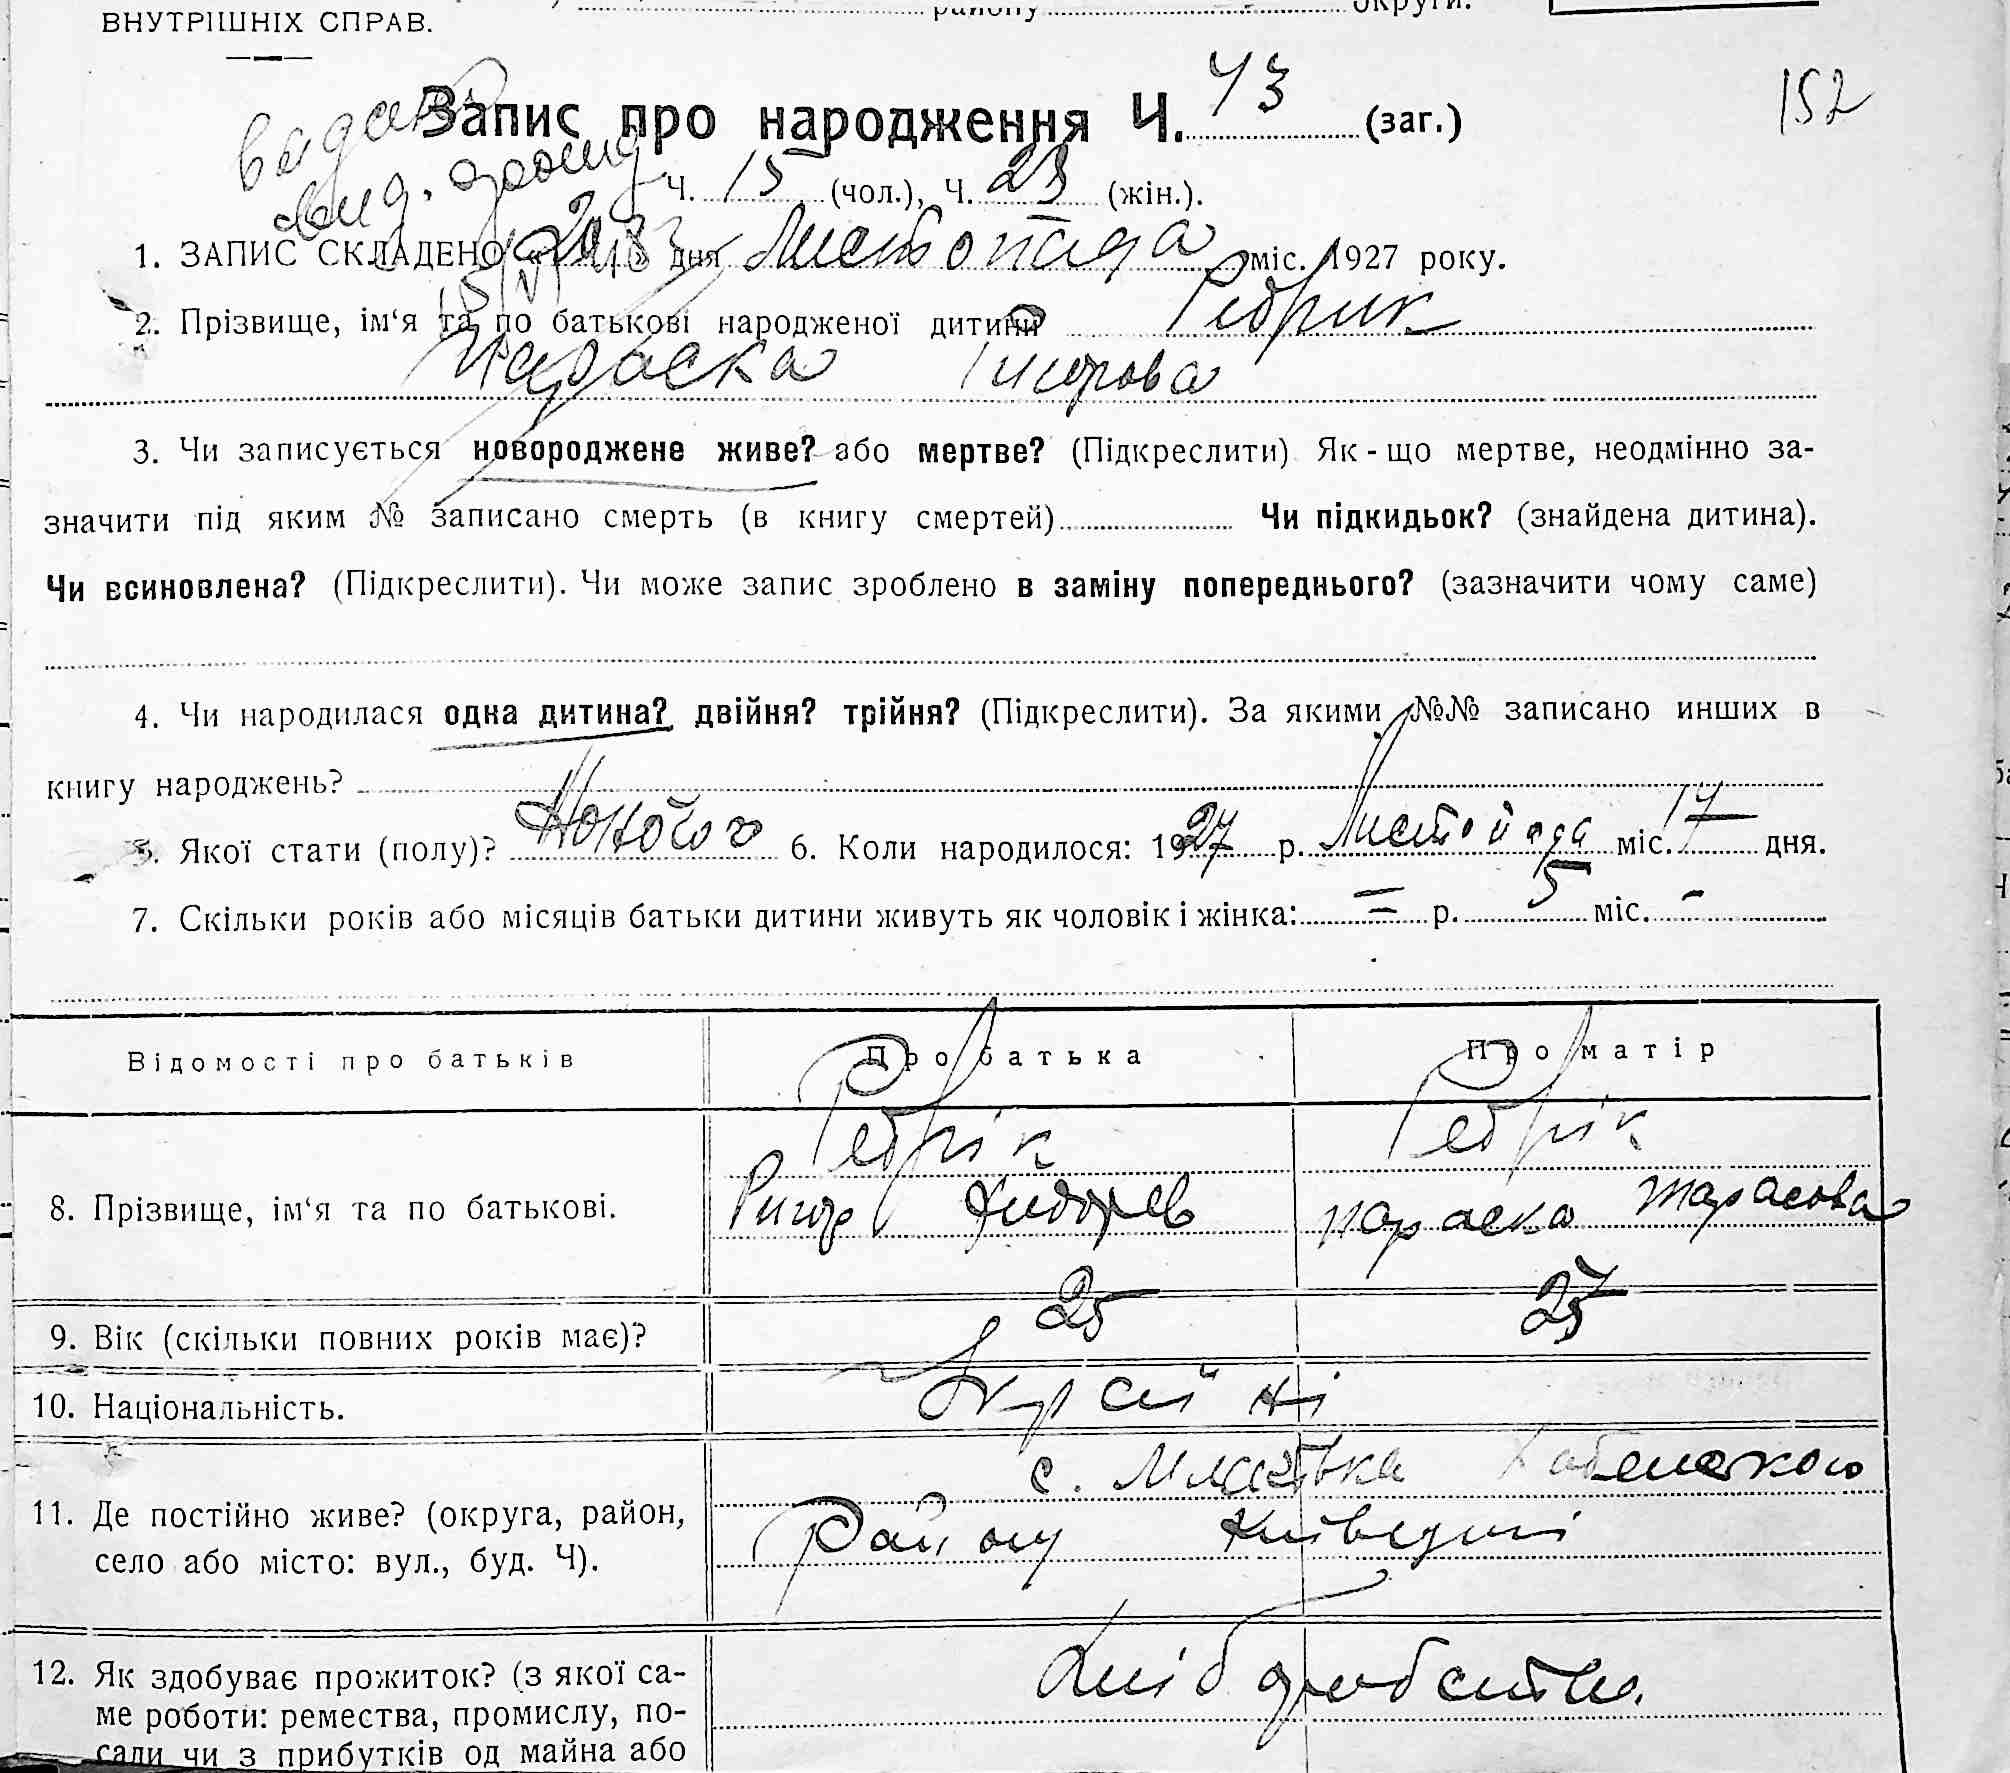 району округи.
ВНУТРІШНІХ СПРАВ.
152
Запис про народження Ч. 43 (заг.)
Ч. 15 (чол.), Ч. 28 (жін.).
1. ЗАПИС СКЛАДЕНО „20“ дня Листопада міс. 1927 року.
2. Прізвище, ім‘я та по батькові народженої дитини Ребрик
Параска Григорова
3. Чи записується новороджене живе? або мертве? (Підкреслити) Як-що мертве, неодмінно за-
значити під яким № записано смерть (в книгу смертей) Чи підкидьок? (знайдена дитина).
Чи всиновлена? (Підкреслити). Чи може запис зроблено в заміну попереднього? (зазначити чому саме)
4. Чи народилася одна дитина? двійня? трійня? (Підкреслити). За якими №№ записано инших в
книгу народжень?
5. Якої стати (полу)? Жіночого 6. Коли народилося: 1927 р. Листопада міс. 17 дня.
7. Скільки років або місяців батьки дитини живуть як чоловік і жінка: = р. 5 міс. -
Відомості про батьків Про батька Про матір
8. Прізвище, ім‘я та по батькові. Ребрік Ребрік
Ригор Параска Тарасова
9. Вік (скільки повних років має)? 25 25
10. Національність. Україні
11. Де постійно живе? (округа, район, с.
село або місто: вул., буд. Ч). Району Київщині
12. Як здобуває прожиток? (з якої са- Хліборобство
ме роботи: ремества, промислу, по-
сади чи з прибутків од майна або